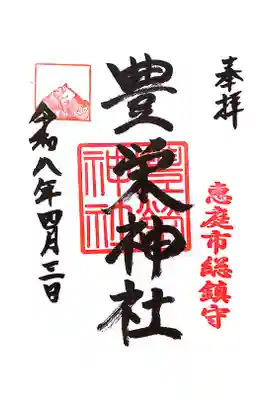 奉拝
恵庭市総鎮守
豊栄神社
豊榮神社
令和八年四月三日